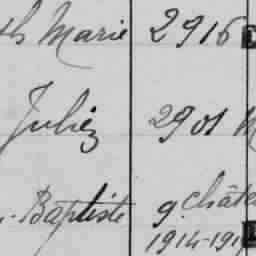 Marie 2916
Julien 2901
-Baptiste g. châte
1914-191